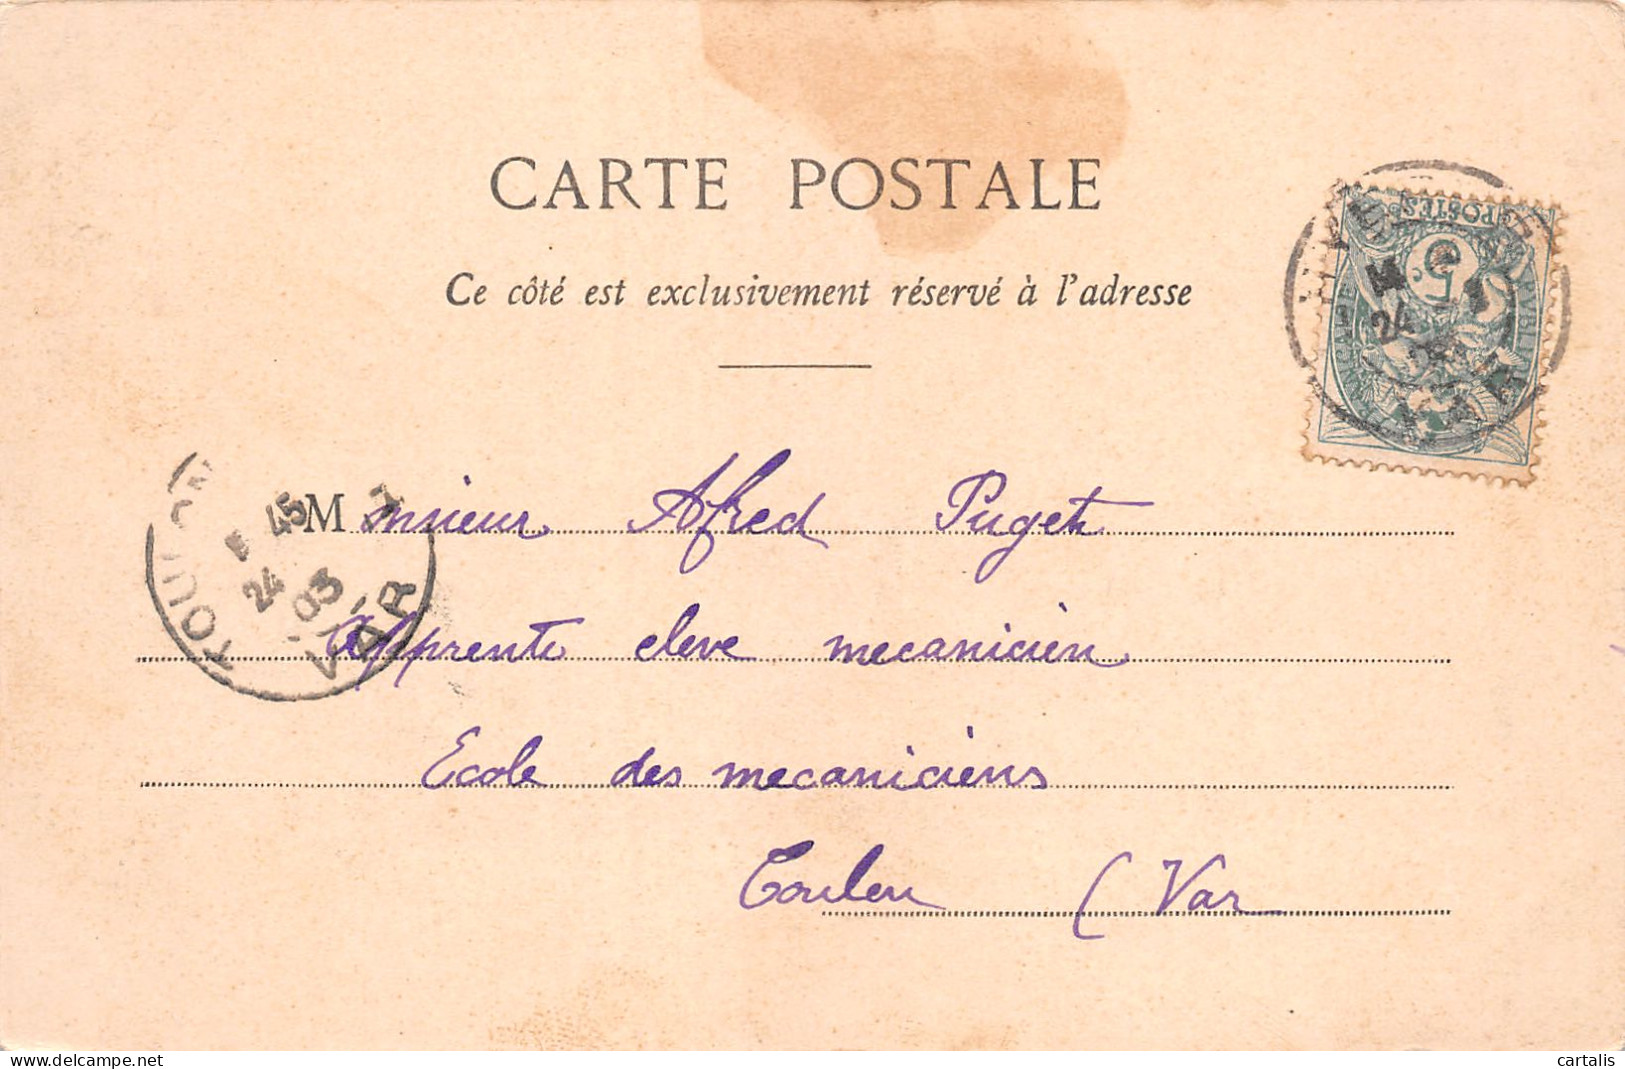 CARTE POSTALE
Ce côté est exclusivement réservé à l'adresse
POSTES
5
24
VAR
TOULON
45
24
03
VAR
Monsieur Alfred Puget
Apprenti eleve mecanicien
Ecole des mecaniciens
Toulon (Var
delcampe.net
cartalis